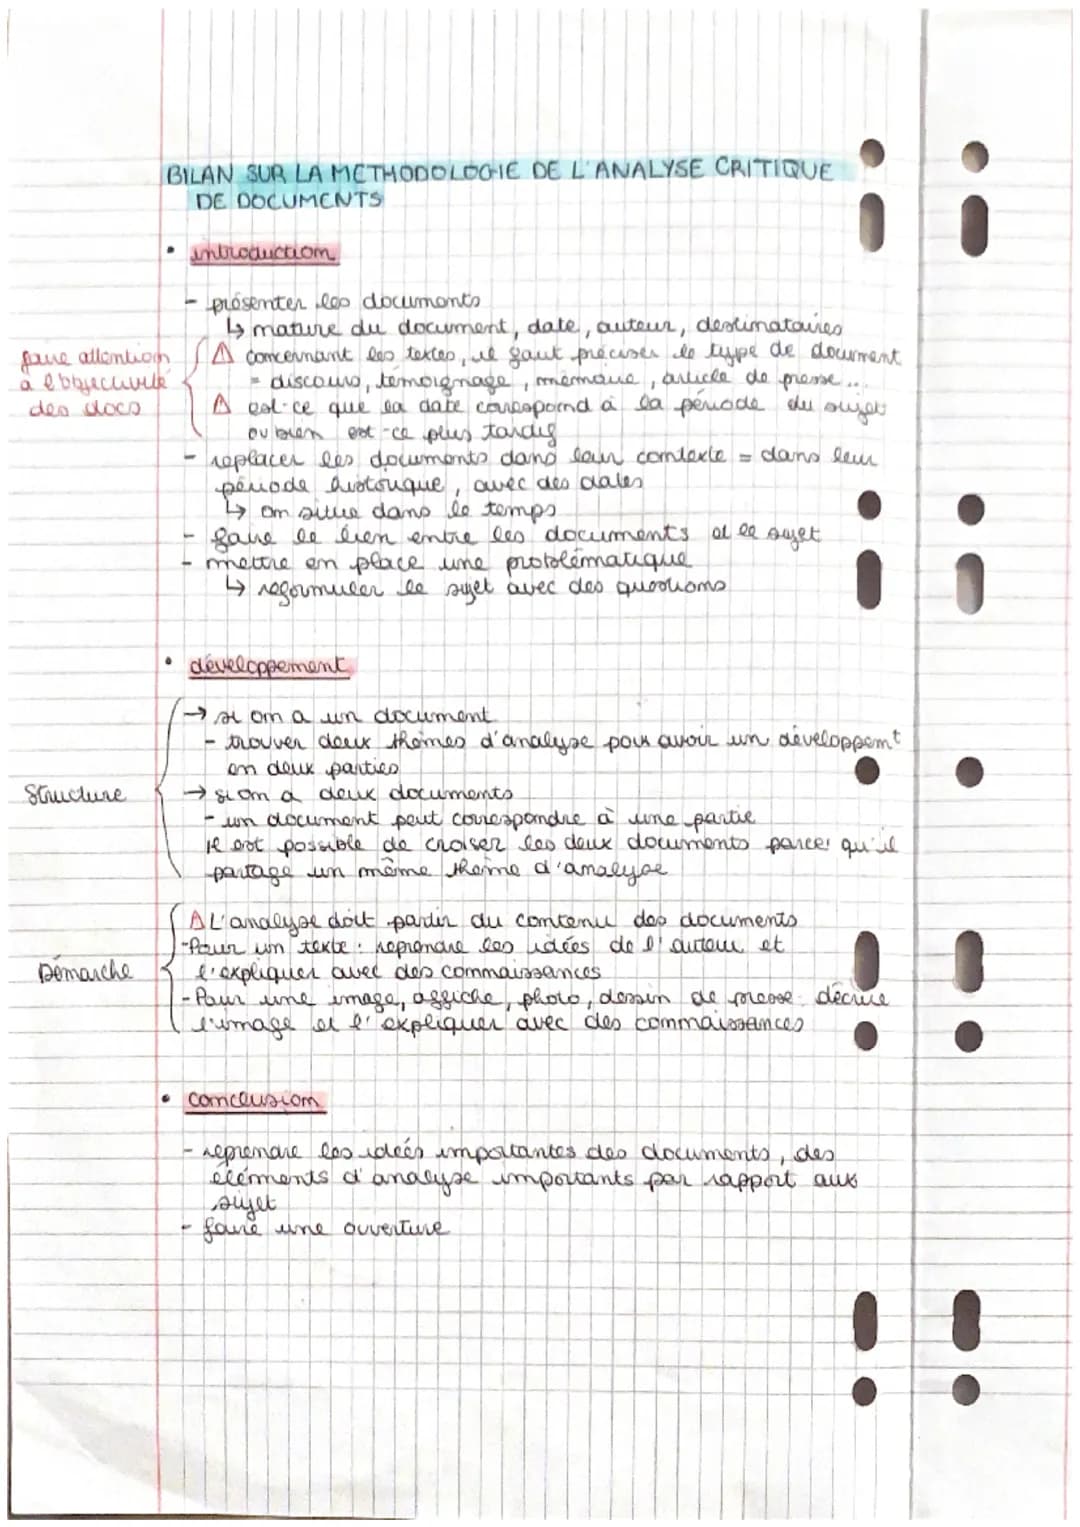 BILAN SUR LA METHODOLOGIE DE L'ANALYSE CRITIQUE
DE DOCUMENTS
• introduction
- présenter les documents
↳ nature du document, date, auteur, destinataires
faire attention
à l'objectivité
des docs
⚠ concernant les textes, il faut préciser le type de document
= discours, témoignage, mémoire, article de presse...
⚠ est-ce que la date correspond à la période du sujet
ou bien est-ce plus tardif
- replacer les documents dans leur contexte = dans leur
période historique, avec des dates
↳ on situe dans le temps
- faire le lien entre les documents et le sujet
- mettre en place une problématique
↳ reformuler le sujet avec des questions
• développement
Structure
→ si on a un document
- trouver deux thèmes d'analyse pour avoir un développemt
en deux parties
→ si on a deux documents
- un document peut correspondre à une partie
il est possible de croiser les deux documents parce qu'il
partage un même thème d'analyse
Démarche
⚠ L'analyse doit partir du contenu des documents
- Pour un texte : reprendre les idées de l'auteur et
l'expliquer avec des connaissances
- Pour une image, affiche, photo, dessin de presse décrire
l'image et l'expliquer avec des connaissances
• conclusion
- reprendre les idées importantes des documents, des
éléments d'analyse importants par rapport aux
sujet
- faire une ouverture